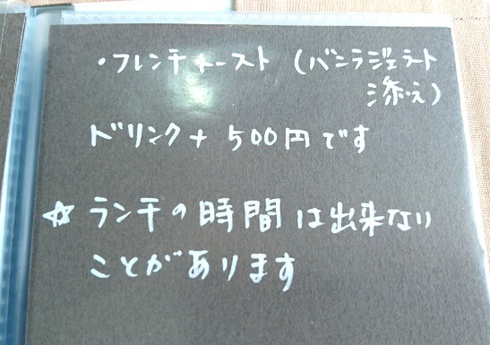 ・フレンチトースト（バニラジェラート
添え）
ドリンク+500円です
☆ランチの時間は出来ない
ことがあります